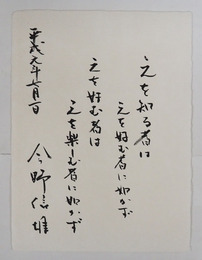 之を知る者は
之を好む者に如かず
之を好む者は
之を楽しむ者に如かず
平成元年七月一日
今野信雄